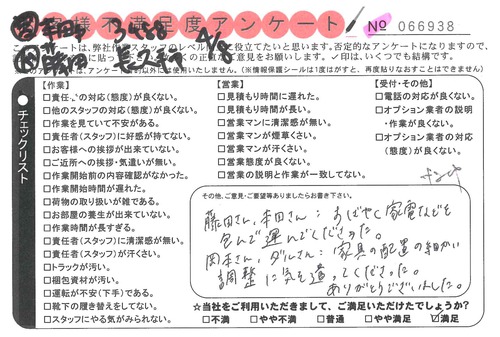 お客様不満足度アンケート
No 066938
このアンケートは、弊社作業スタッフのレベル向上に役立てたいと思います。否定的なアンケートになりますので、
【作業】
□責任者の対応(態度)が良くない。
□他のスタッフの対応(態度)が良くない。
□作業を見ていて不安がある。
□責任者(スタッフ)に好感が持てない。
□お客様への挨拶が出来ていない。
□ご近所への挨拶・気遣いが無い。
□作業開始前の内容確認がなかった。
□作業開始時間が遅れた。
□荷物の取り扱いが雑である。
□お部屋の養生が出来ていない。
□作業時間が長すぎる。
□責任者(スタッフ)に清潔感が無い。
□責任者(スタッフ)が汗くさい。
□トラックが汚い。
□梱包資材が汚い。
□運転が不安(下手)である。
□靴下の履き替えをしてない。
□スタッフにやる気がみられない。
【営業】
□見積もり時間に遅れた。
□見積もり時間が長い。
□営業マンに清潔感が無い。
□営業マンが煙草くさい。
□営業マンが汗くさい。
□営業態度が良くない。
□営業の説明と作業が一致してない。
【受付・その他】
□電話の対応が良くない。
□オプション業者の説明
・作業が良くない。
□オプション業者の対応
(態度)が良くない。
チェックリスト
その他、ご意見・ご要望等ありましたらお書き下さい。
藤田さん、本田さん:すばやく家電などを
包んで運んでくださった。
岡本さん、ダルさん:家具の配置の細かい
調整に気を遣ってくださった。
ありがとうございました。
☆当社をご利用いただきまして、ご満足いただけたでしょうか?
□不満 □やや不満 □普通 □やや満足 ☑満足